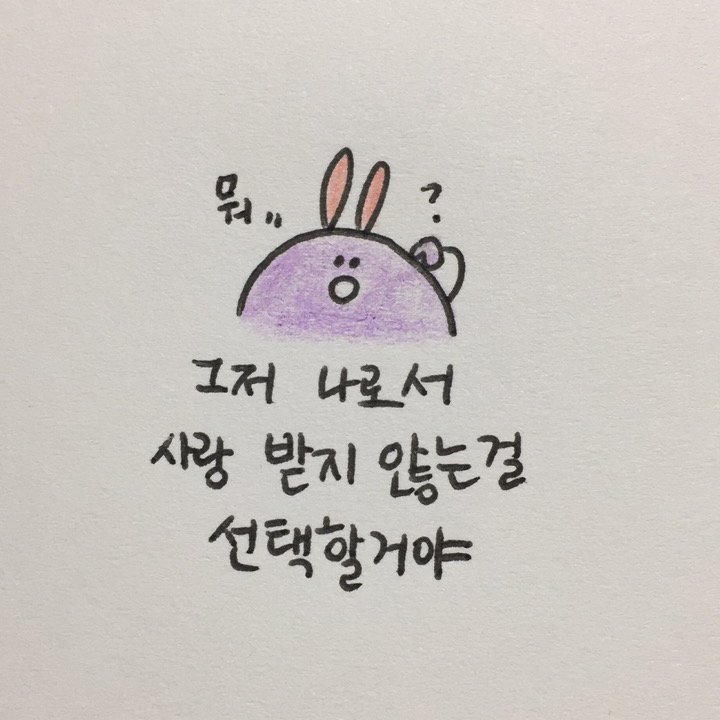 뭐,, ?
그저 나로서
사랑 받지 않는걸
선택할거야